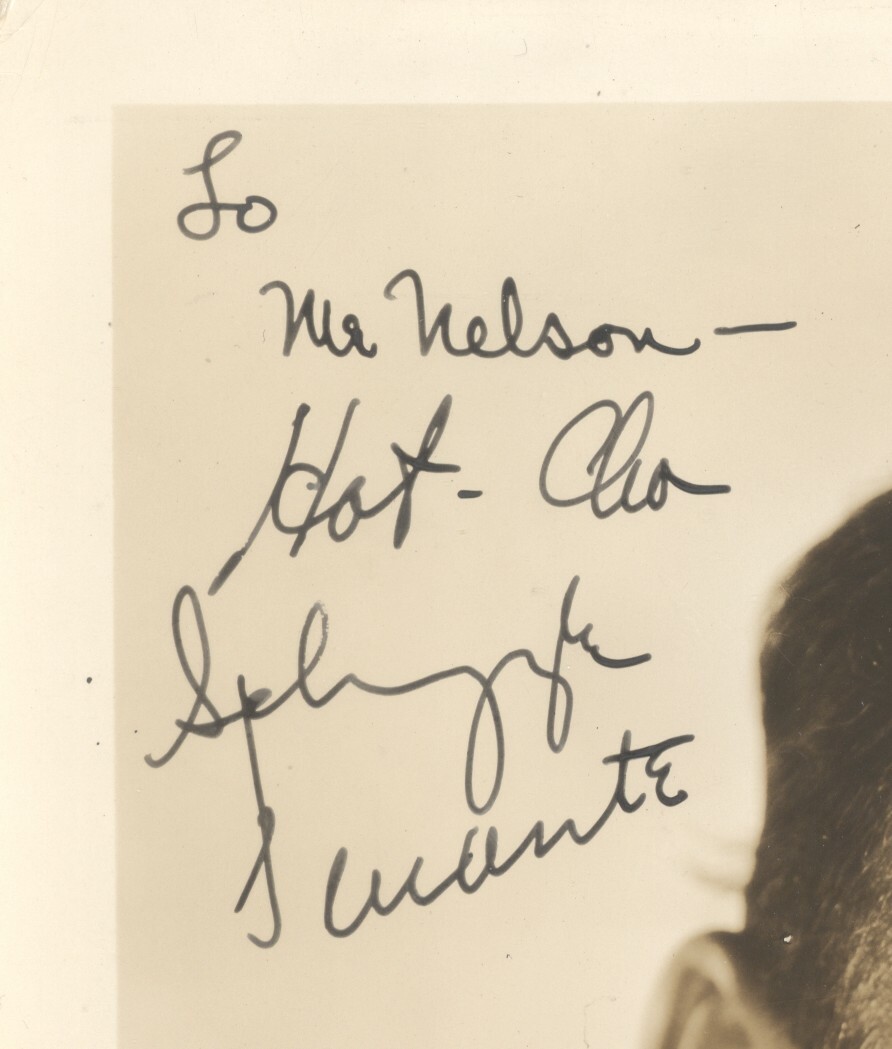 To
Mr Nelson —
Hot - Cha
Schnozzle
Durante